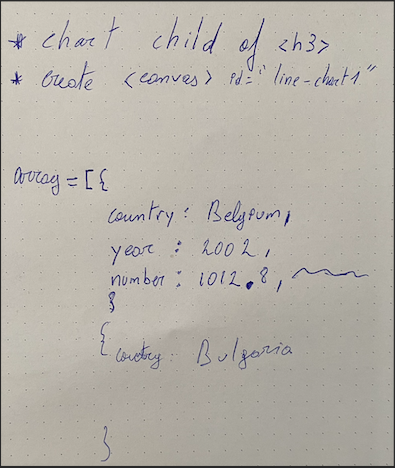 * chart child of <h3>
* create <canvas> id="line-chart1"
array = [{
country: Belgium,
year : 2002,
number : 1012.8,
}
{
country: Bulgaria
}